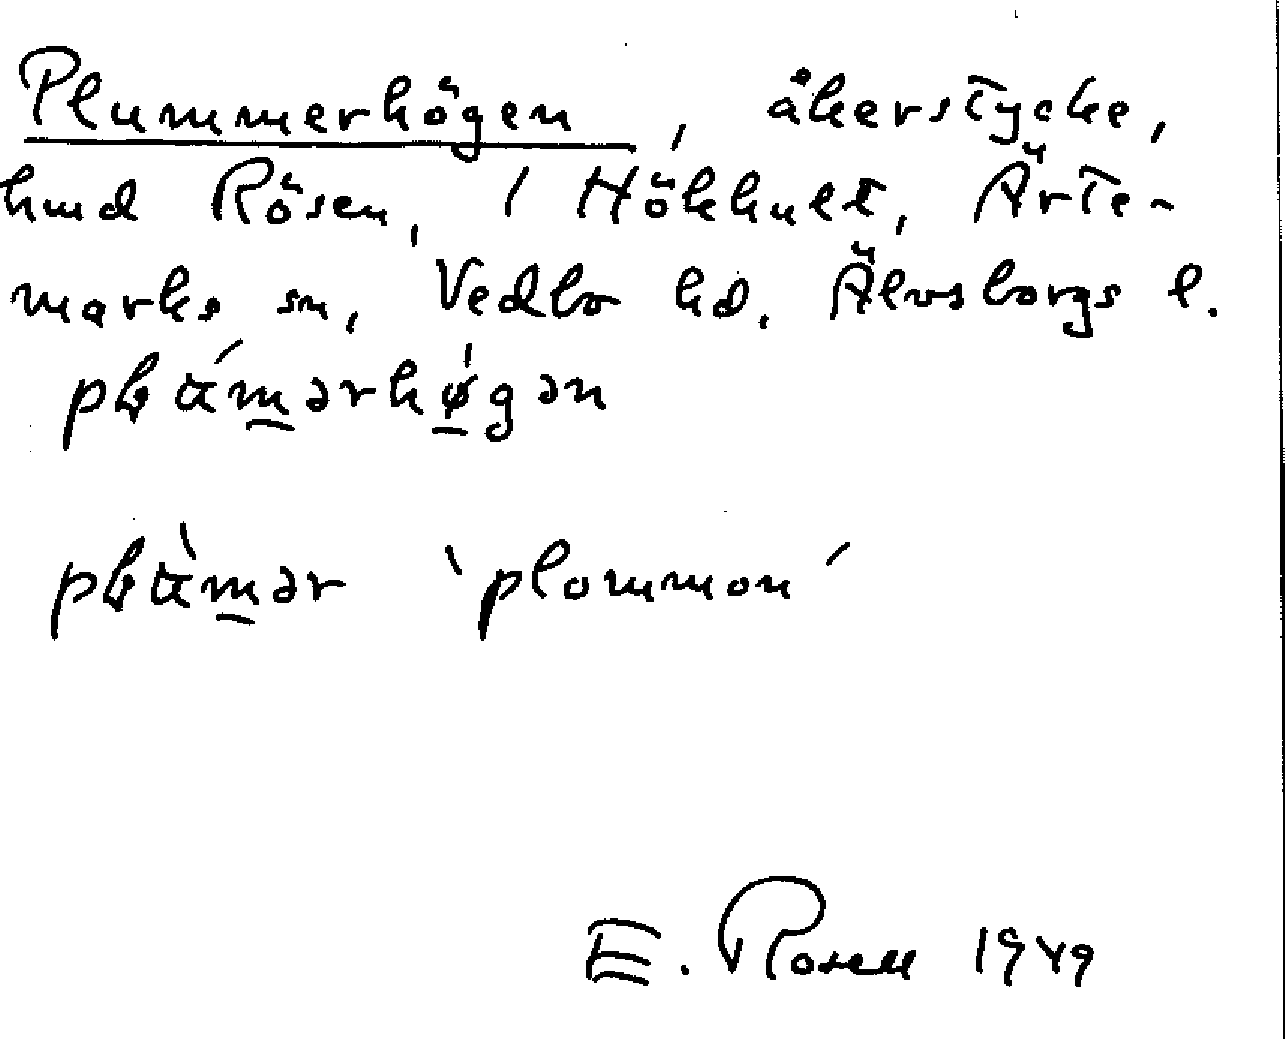 Plummerhögen, åkerstycke,
hmd Rösen, i Hökhult, Ärte-
marks sn, Vedbo hd. Älvsborgs l.
plɯ́mərhø̍gən
plɯ̀mər 'plommon'
E. Rosell 1949